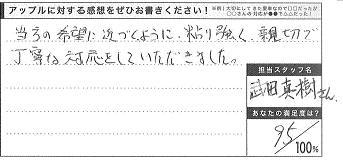 アップルに対する感想をぜひお書きください!
※例)大切にしてきた愛車なので□□だったが
○○さんの対応が●●で△△だった!
当方の希望に近づくように、粘り強く、親切で
丁寧な対応をしていただきました。
担当スタッフ名
武田真樹さん
あなたの満足度は?
95/100%